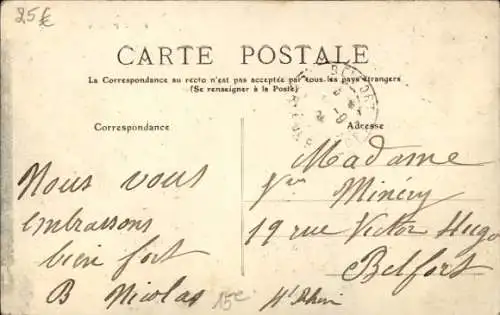 25€
CARTE POSTALE
La Correspondance au recto n'est pas acceptée par tous les pays étrangers
(Se renseigner à la Poste)
Correspondance
Adresse
Nous vous
embrassons
bien fort
B Nicolas
15€
Madame
Vve Minéry
19 rue Victor Hugo
Belfort
Ht Rhin